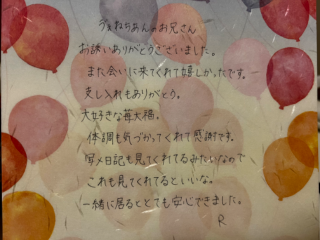 お兄さん
お誘いありがとうございました。
また会いに来てくれて嬉しかったです。
差し入れもありがとう。
大好きな苺大福。
体調も気づかってくれて感謝です。
写メ日記も見てくれてるみたいなので
これも見てくれてるといいな。
一緒に居るととても安心できました。
R